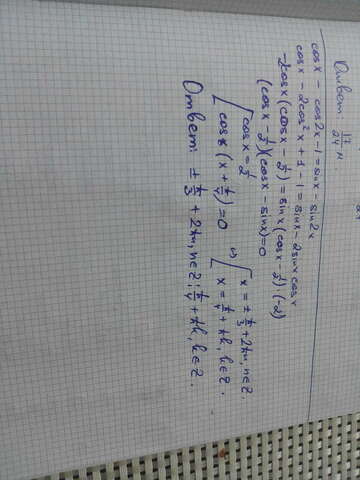 Ответ: 17/24 π
cosx - cos2x - 1 = sinx - sin2x
cosx - 2cos²x + 1 - 1 = sinx - 2sinx cosx
-2cosx (cosx - 1/2) = sinx (cosx - 1/2) · (-2)
(cosx - 1/2)(cosx - sinx) = 0
[ cosx = 1/2 ⇔ [ x = ± π/3 + 2πn, n∈Z
[ cos (x + π/4) = 0 [ x = π/4 + πk, k∈Z.
Ответ: ± π/3 + 2πn, n∈Z; π/4 + πk, k∈Z.